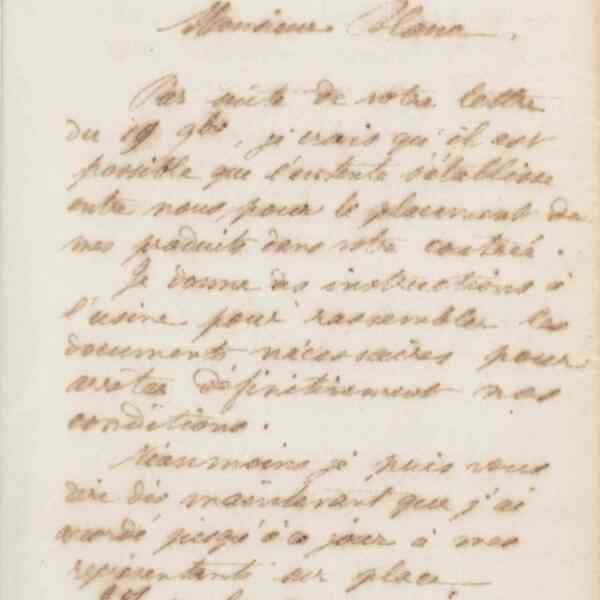 Monsieur Blanc,
Par suite de votre lettre
du 19 9bre, je crois qu'il est
possible que l'entente s'établisse
entre nous pour le placement de
mes produits dans votre contrée.
Je donne des instructions à
l'usine pour rassembler les
documents nécessaires pour
arrêter définitivement nos
conditions.
Néanmoins je puis vous
dire dès maintenant que j'ai
accordé jusqu'à ce jour à mes
représentants sur place